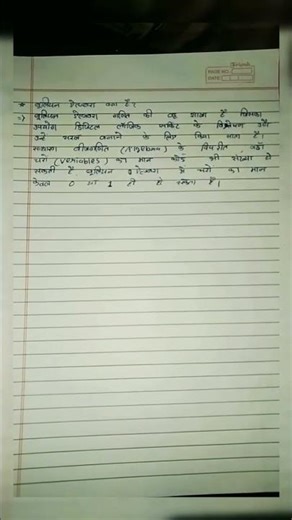 PAGE NO.
DATE
* बूलियन ऐल्जेबरा क्या है।
बूलियन ऐल्जेबरा गणित की वह शाखा है जिसका
उपयोग डिजिटल लॉजिक सर्किट के विश्लेषण और
उन्हें सरल बनाने के लिए किया जाता है।
सामान्य बीजगणित (Algebra) के विपरीत, जहाँ
चरों (Variables) का मान कोई भी संख्या हो
सकती है बूलियन ऐल्जेबरा में चरों का मान
केवल 0 या 1 ही हो सकता है।